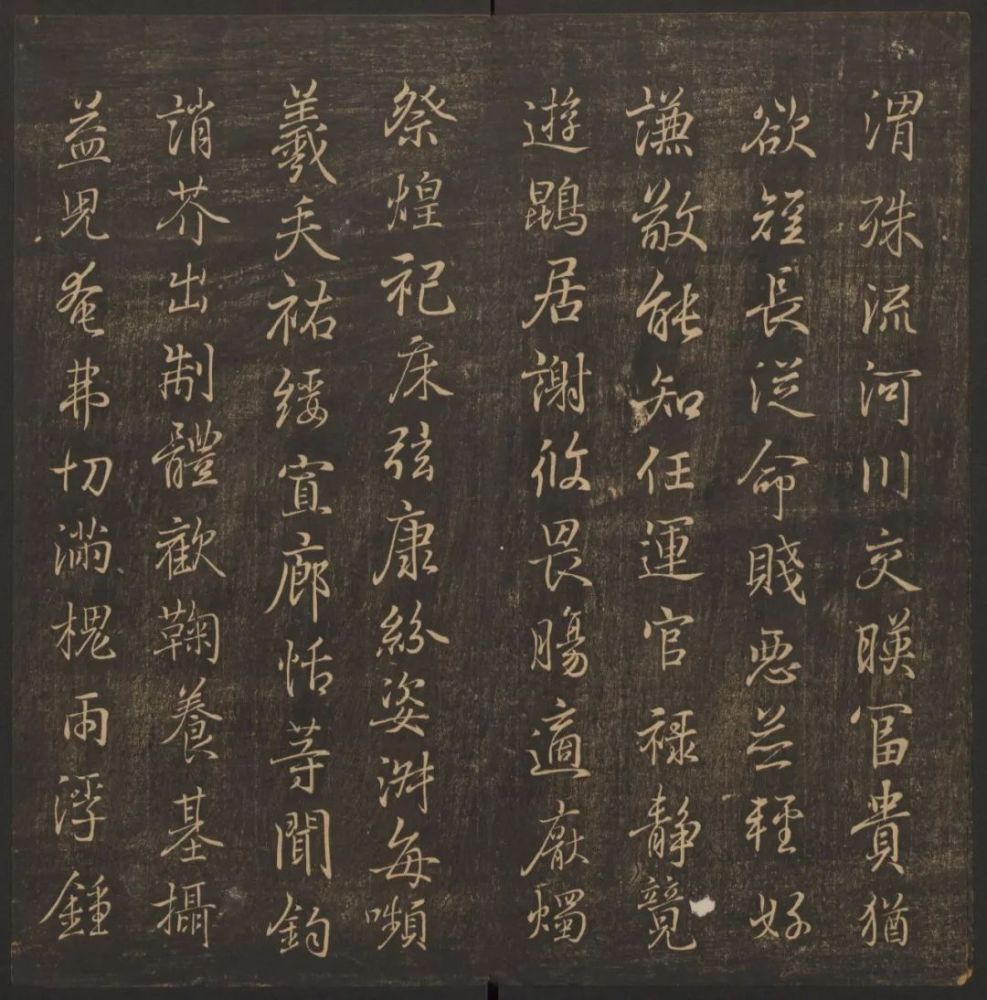 渭殊流河川交暎冨貴猶
欲短長従命賤惡並輕好
謙敬能知任運官禄静競
遊鵾居謝攸畏腸適厭燭
祭煌祀床弦康紛姿淑每嚬
義矢祐綏宣廊恬等聞鈞
誚芥出制體歡鞠養基攝
益見奄弗切滿槐雨浮鍾